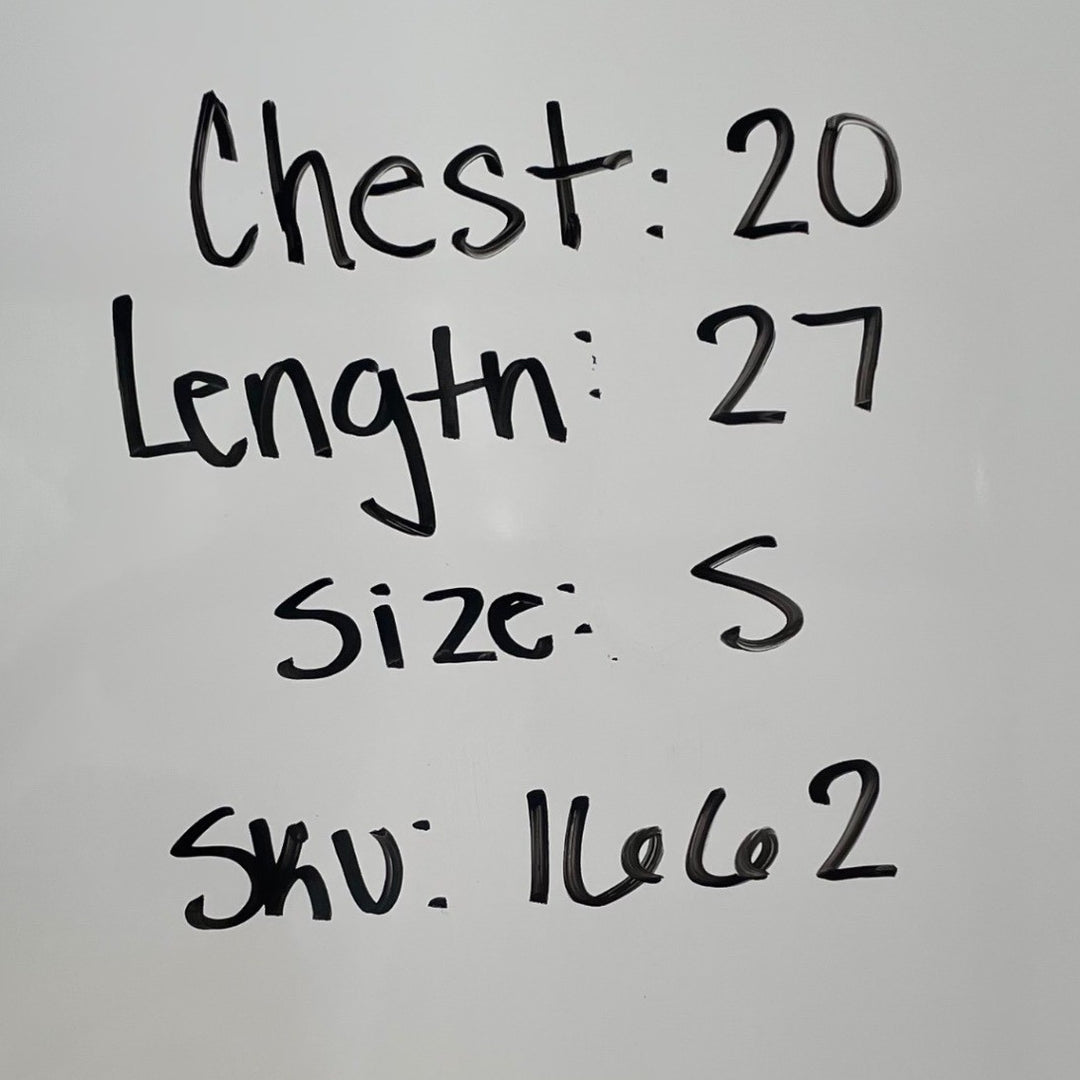 Chest: 20
Length: 27
Size: S
SKU: 1662